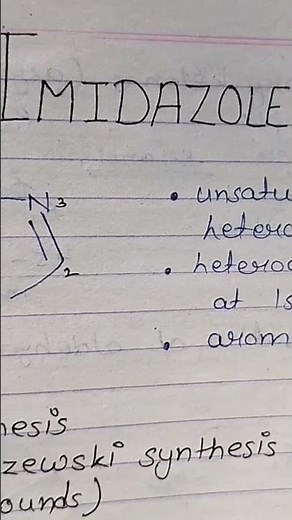 IMIDAZOLE
N 3
• unsatu
hetero
2
• heteroc
at 1s
• arom
hesis
zewski synthesis
ounds)